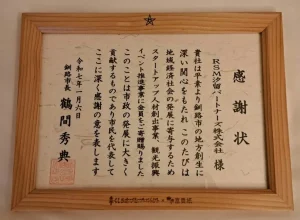 感謝状
RSM汐留パートナーズ株式会社 様
貴社は平素より釧路市の地方創生に
深い関心をもたれ このたびは
地域経済社会の発展に寄与するため
スタートアップ人材創出事業、観光振興
イベント推進事業に金員をご寄贈賜りました
このことは市政の発展に大きく
貢献するものであり市民を代表して
ここに深く感謝の意を表します
令和七年一月六日
釧路市長 鶴間秀典